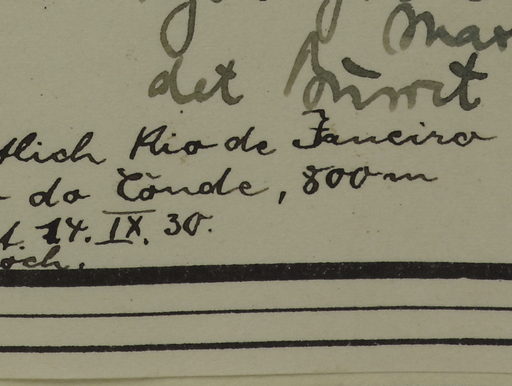 Max
det Burret
tlich Rio de Janeiro
do Conde, 800 m
14. IX. 30.
och.